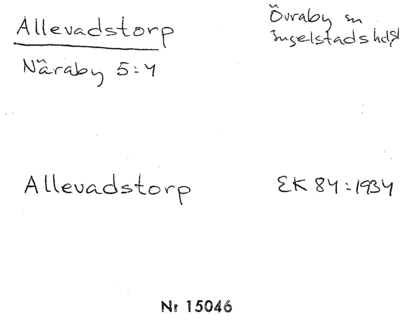 Allevadstorp
Näraby 5:4
Övraby sn
Ingelstads hd
Allevadstorp
EK 84:1934
Nr 15046